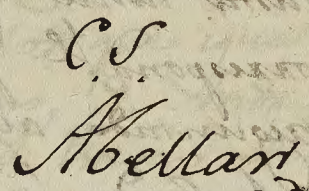 C. S.
Abellan